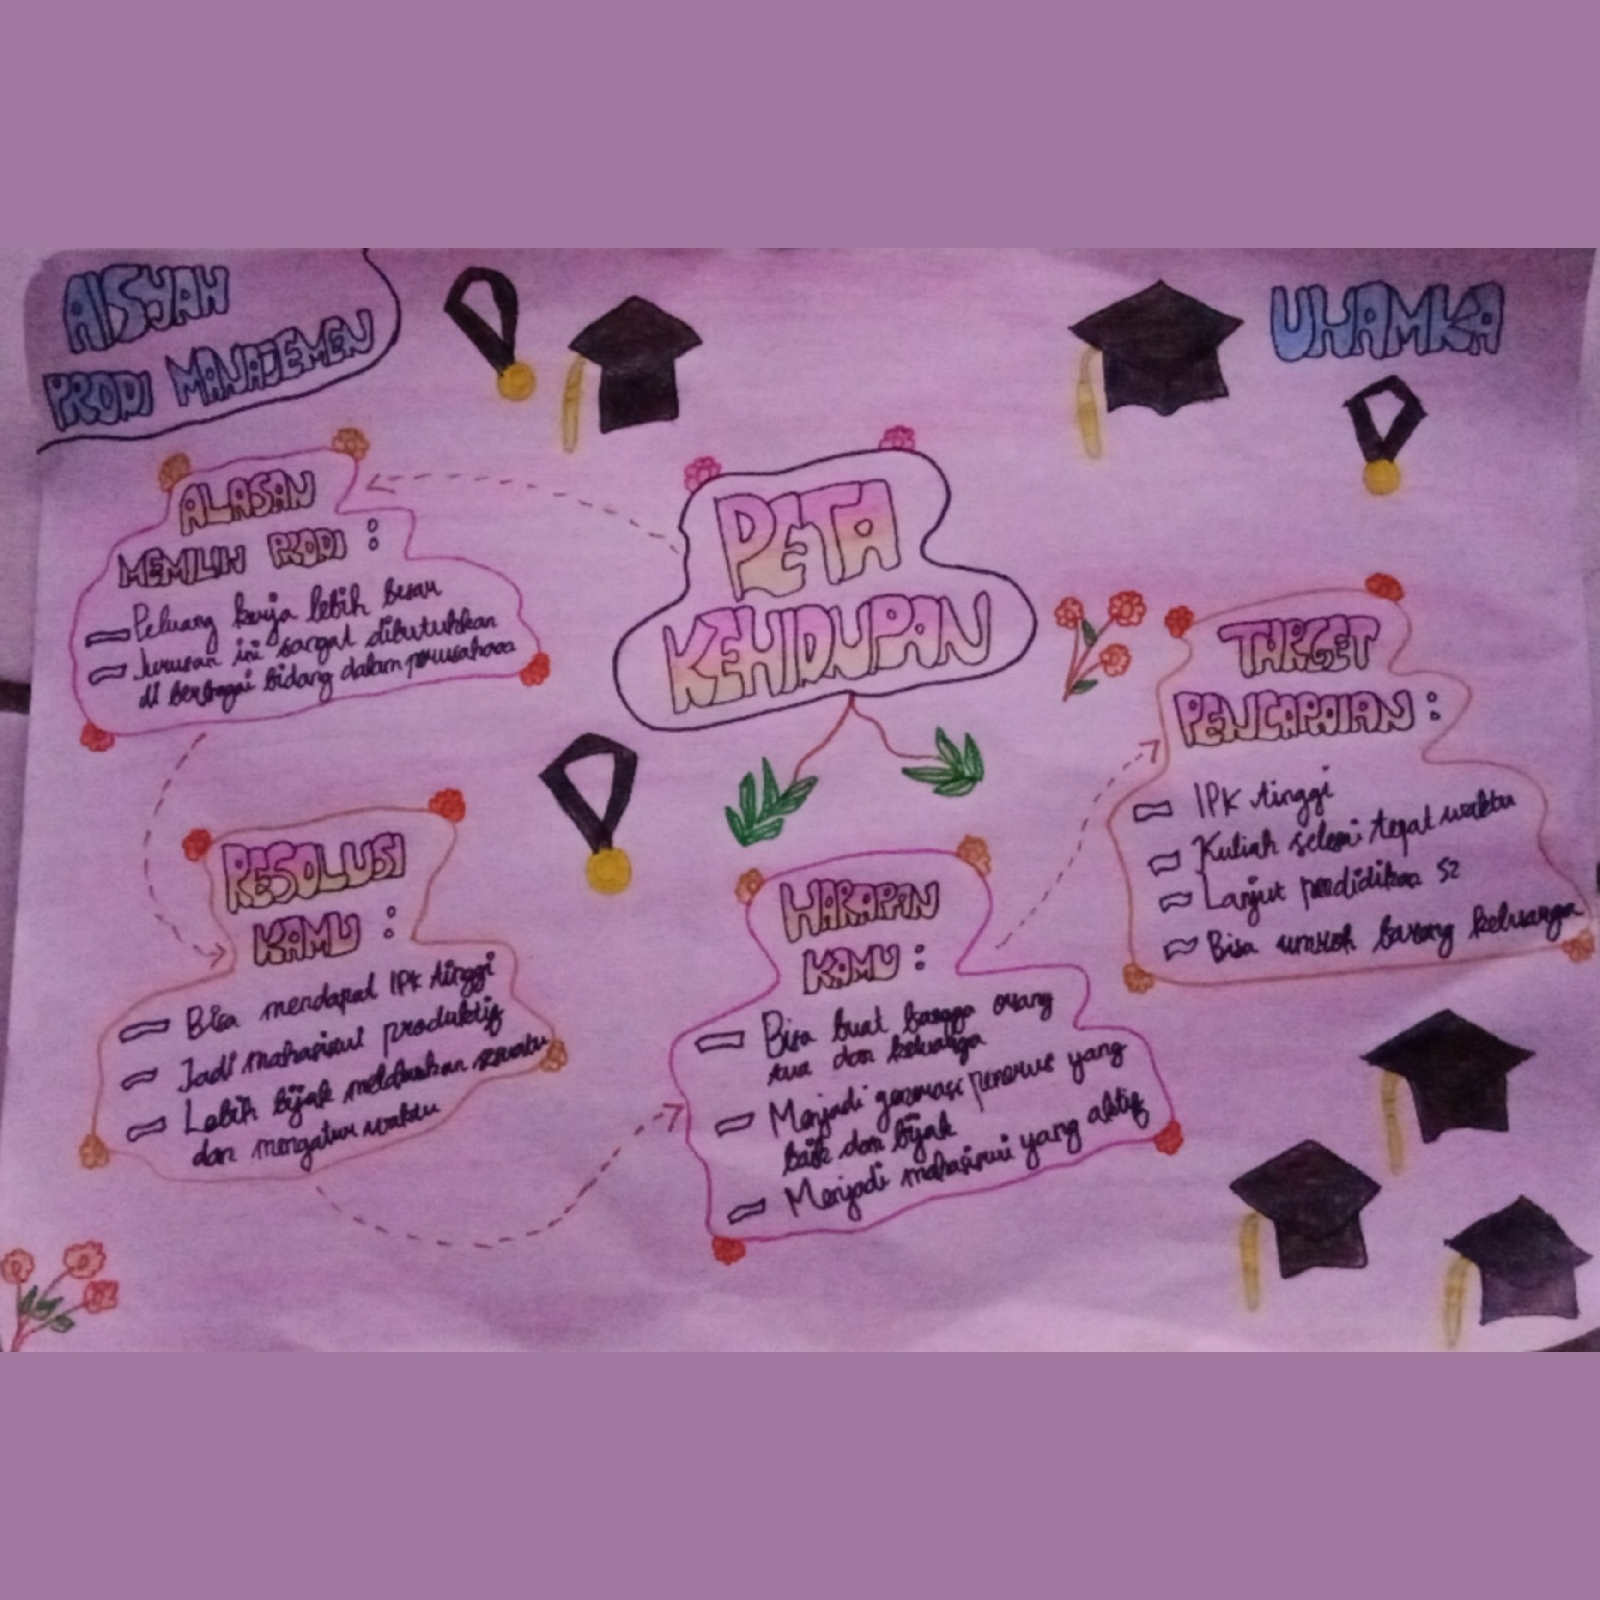 AISYAH
PRODI MANAJEMEN
UHAMKA
PETA
KEHIDUPAN
ALASAN
MEMILIH PRODI :
Peluang kerja lebih besar
Jurusan ini sangat dibutuhkan
di berbagai bidang dalam perusahaan
RESOLUSI
KAMU :
Bisa mendapat IPK tinggi
Jadi mahasiswi produktif
Lebih bijak melakukan sesuatu
dan mengatur waktu
HARAPAN
KAMU :
Bisa buat bangga orang
tua dan keluarga
Menjadi generasi penerus yang
baik dan bijak
Menjadi mahasiswi yang aktif
TARGET
PENCAPAIAN :
IPK tinggi
Kuliah selesai tepat waktu
Lanjut pendidikan S2
Bisa umroh bareng keluarga